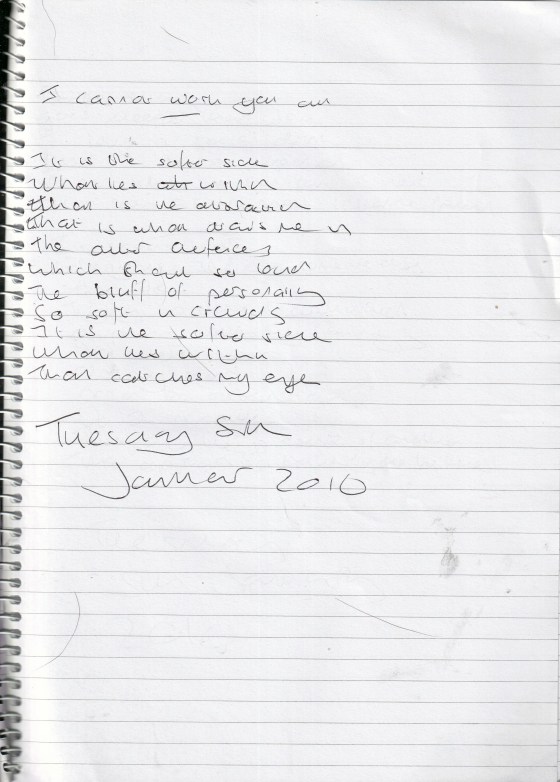 I cannot work you out
It is the softer side
What lies within
that is the attraction
that is what draws me in
the outer defences
which shout so loud
The bluff of personality
So soft in crowds
It is the softer side
what lies within
That catches my eye
Tuesday 5th
January 2010